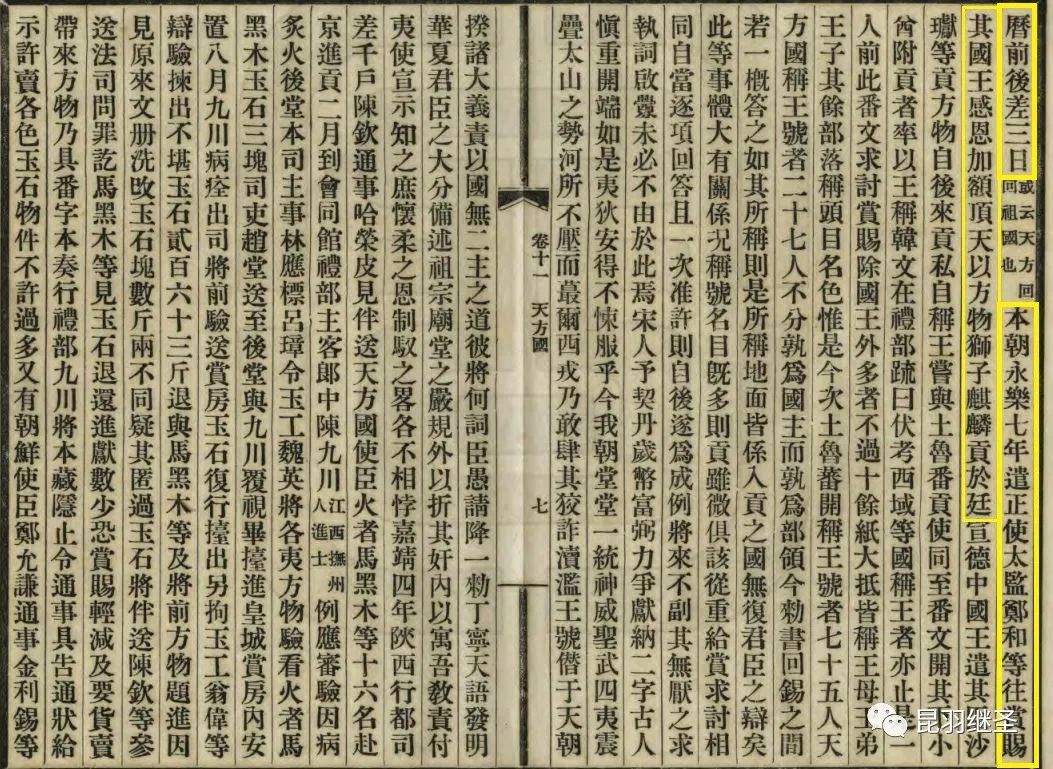 曆前後差三日或云天方回回祖國也本朝永樂七年遣正使太監鄭和等往賞賜
其國王感恩加額頂天以方物獅子麒麟貢於廷宣德中國王遣其沙
瓛等貢方物自後來貢私自稱王嘗與土魯番貢使同至番文開其小
酋附貢者率以王稱韓文在禮部疏曰伏考西域等國稱王者亦止一
人前此番文求討賞賜除國王外多者不過十餘紙大抵皆稱王母王弟
王子其餘部落稱頭目名色惟是今次土魯蕃開稱王號者七十五人天
方國稱王號者二十七人不分孰爲國主而孰爲部領今勅書回錫之間
若一槪答之如其所稱則是所稱地面皆係入貢之國無復君臣之辯矣
此等事體大有關係況稱號名目旣多則貢雖微俱該從重給賞求討相
同自當逐項回答且一次准許則自後遂爲成例將來不副其無厭之求
執詞啟釁未必不由於此焉宋人予契丹歲幣富弼力爭獻納二字古人
愼重開端如是夷狄安得不悚服乎今我朝堂堂一統神威聖武四夷震
疊太山之勢河所不壓而蕞爾西戎乃敢肆其狡詐瀆濫王號僭于天朝
卷十一 天方國 七
揆諸大義責以國無二主之道彼將何詞臣愚請降一勅丁寧天語發明
華夏君臣之大分備述祖宗廟堂之嚴規外以折其奸內以寓吾敎責付
夷使宣示知之庶懷柔之恩制馭之畧各不相悖嘉靖四年陝西行都司
差千戶陳欽通事哈榮皮見伴送天方國使臣火者馬黑木等十六名赴
京進貢二月到會同館禮部主客郎中陳九川江西撫州人進士例應審驗因病
炙火後堂本司主事林應標呂璋令玉工魏英將各夷方物驗看火者馬
黑木玉石三塊司吏趙堂送至後堂與九川覆視畢擡進皇城賞房內安
置八月九川病痊出司將前驗送賞房玉石復行擡出另拘玉工翁偉等
辯驗揀出不堪玉石貳百六十三斤退與馬黑木等及將前方物題進因
見原來文册洗改玉石塊數斤兩不同疑其匿過玉石將伴送陳欽等參
送法司問罪訖馬黑木等見玉石退還進獻數少恐賞賜輕減及要貨賣
帶來方物乃具番字本奏行禮部九川將本藏隱止令通事具告通狀給
示許賣各色玉石物件不許過多又有朝鮮使臣鄭允謙通事金利錫等
昆羽继圣